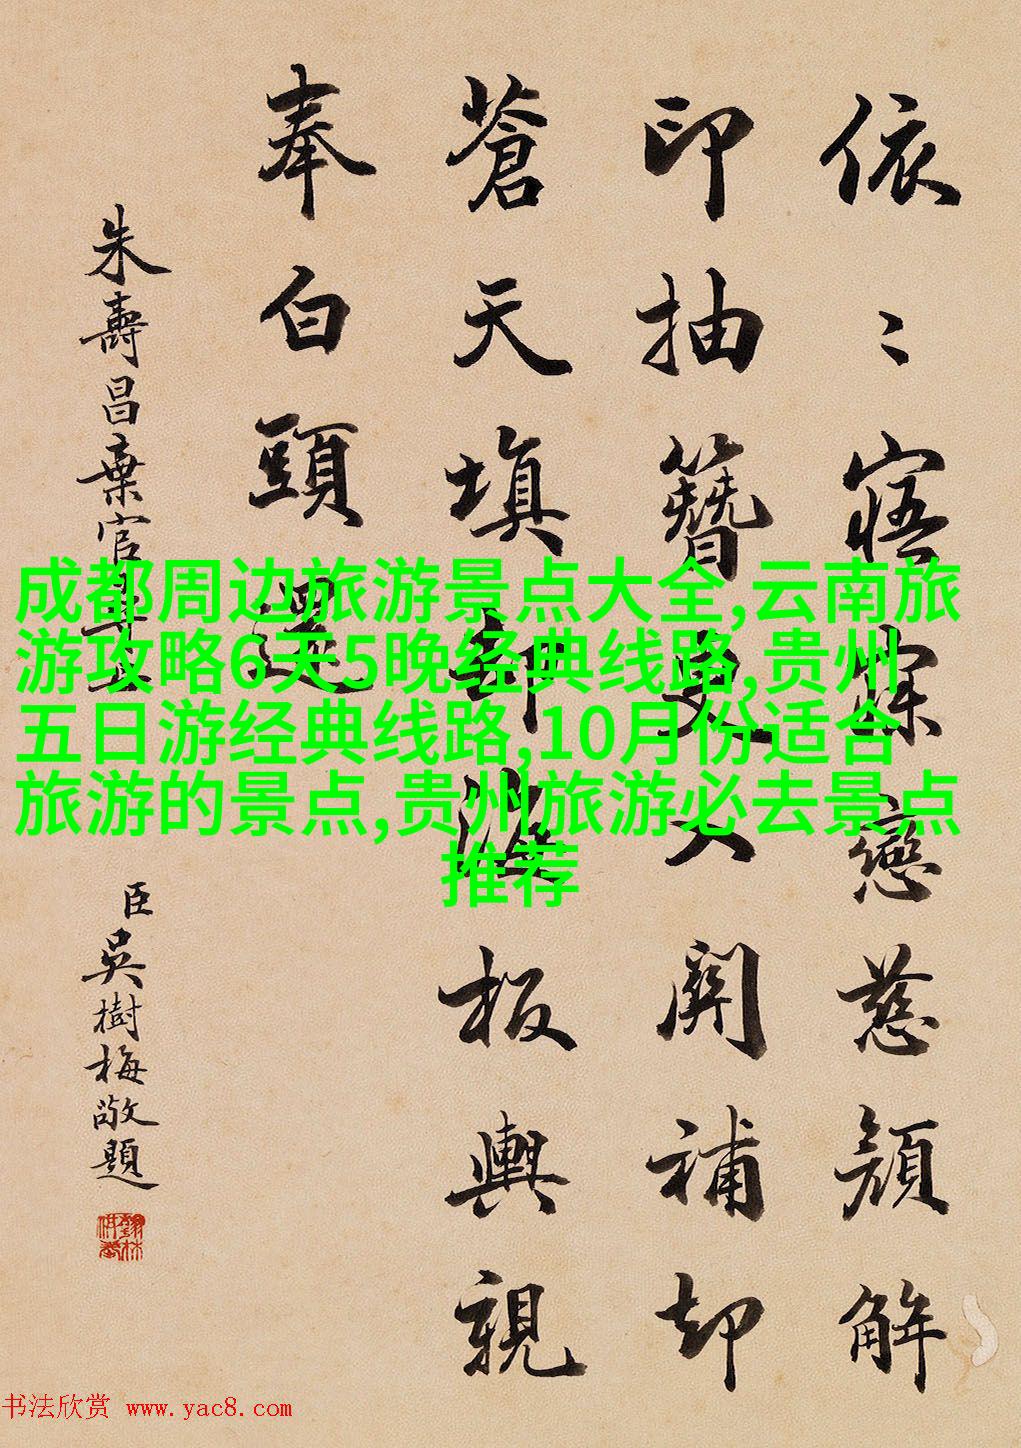 依〻寤寐戀慈顏解
印抽簪更入關補却
蒼天填却海板輿親
奉白頭還
朱壽昌棄官尋母
臣吳樹梅敬題
成都周边旅游景点大全,云南旅
游攻略6天5晚经典线路,贵州
五日游经典线路,10月份适合
旅游的景点,贵州旅游必去景点
推荐
书法欣赏 www.yac8.com